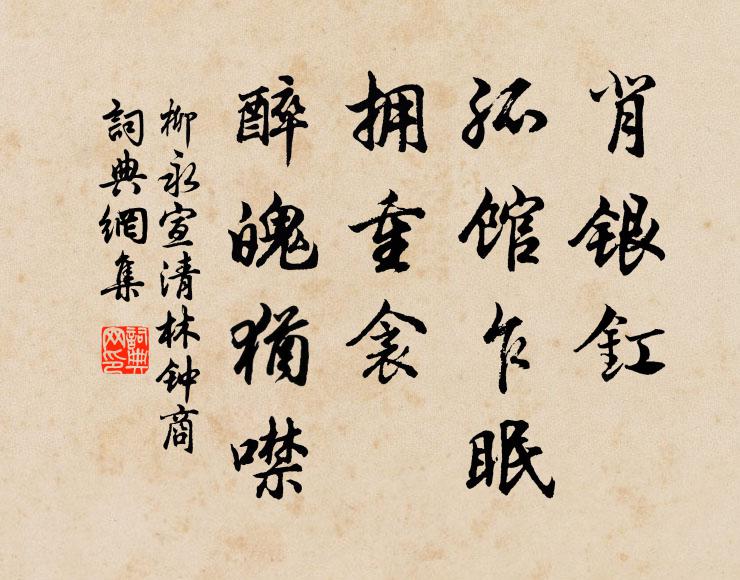 肖银釭
孤馆乍眠
拥重衾
醉魄犹噤
柳永宣清林钟商
詞典網集
詞典网印